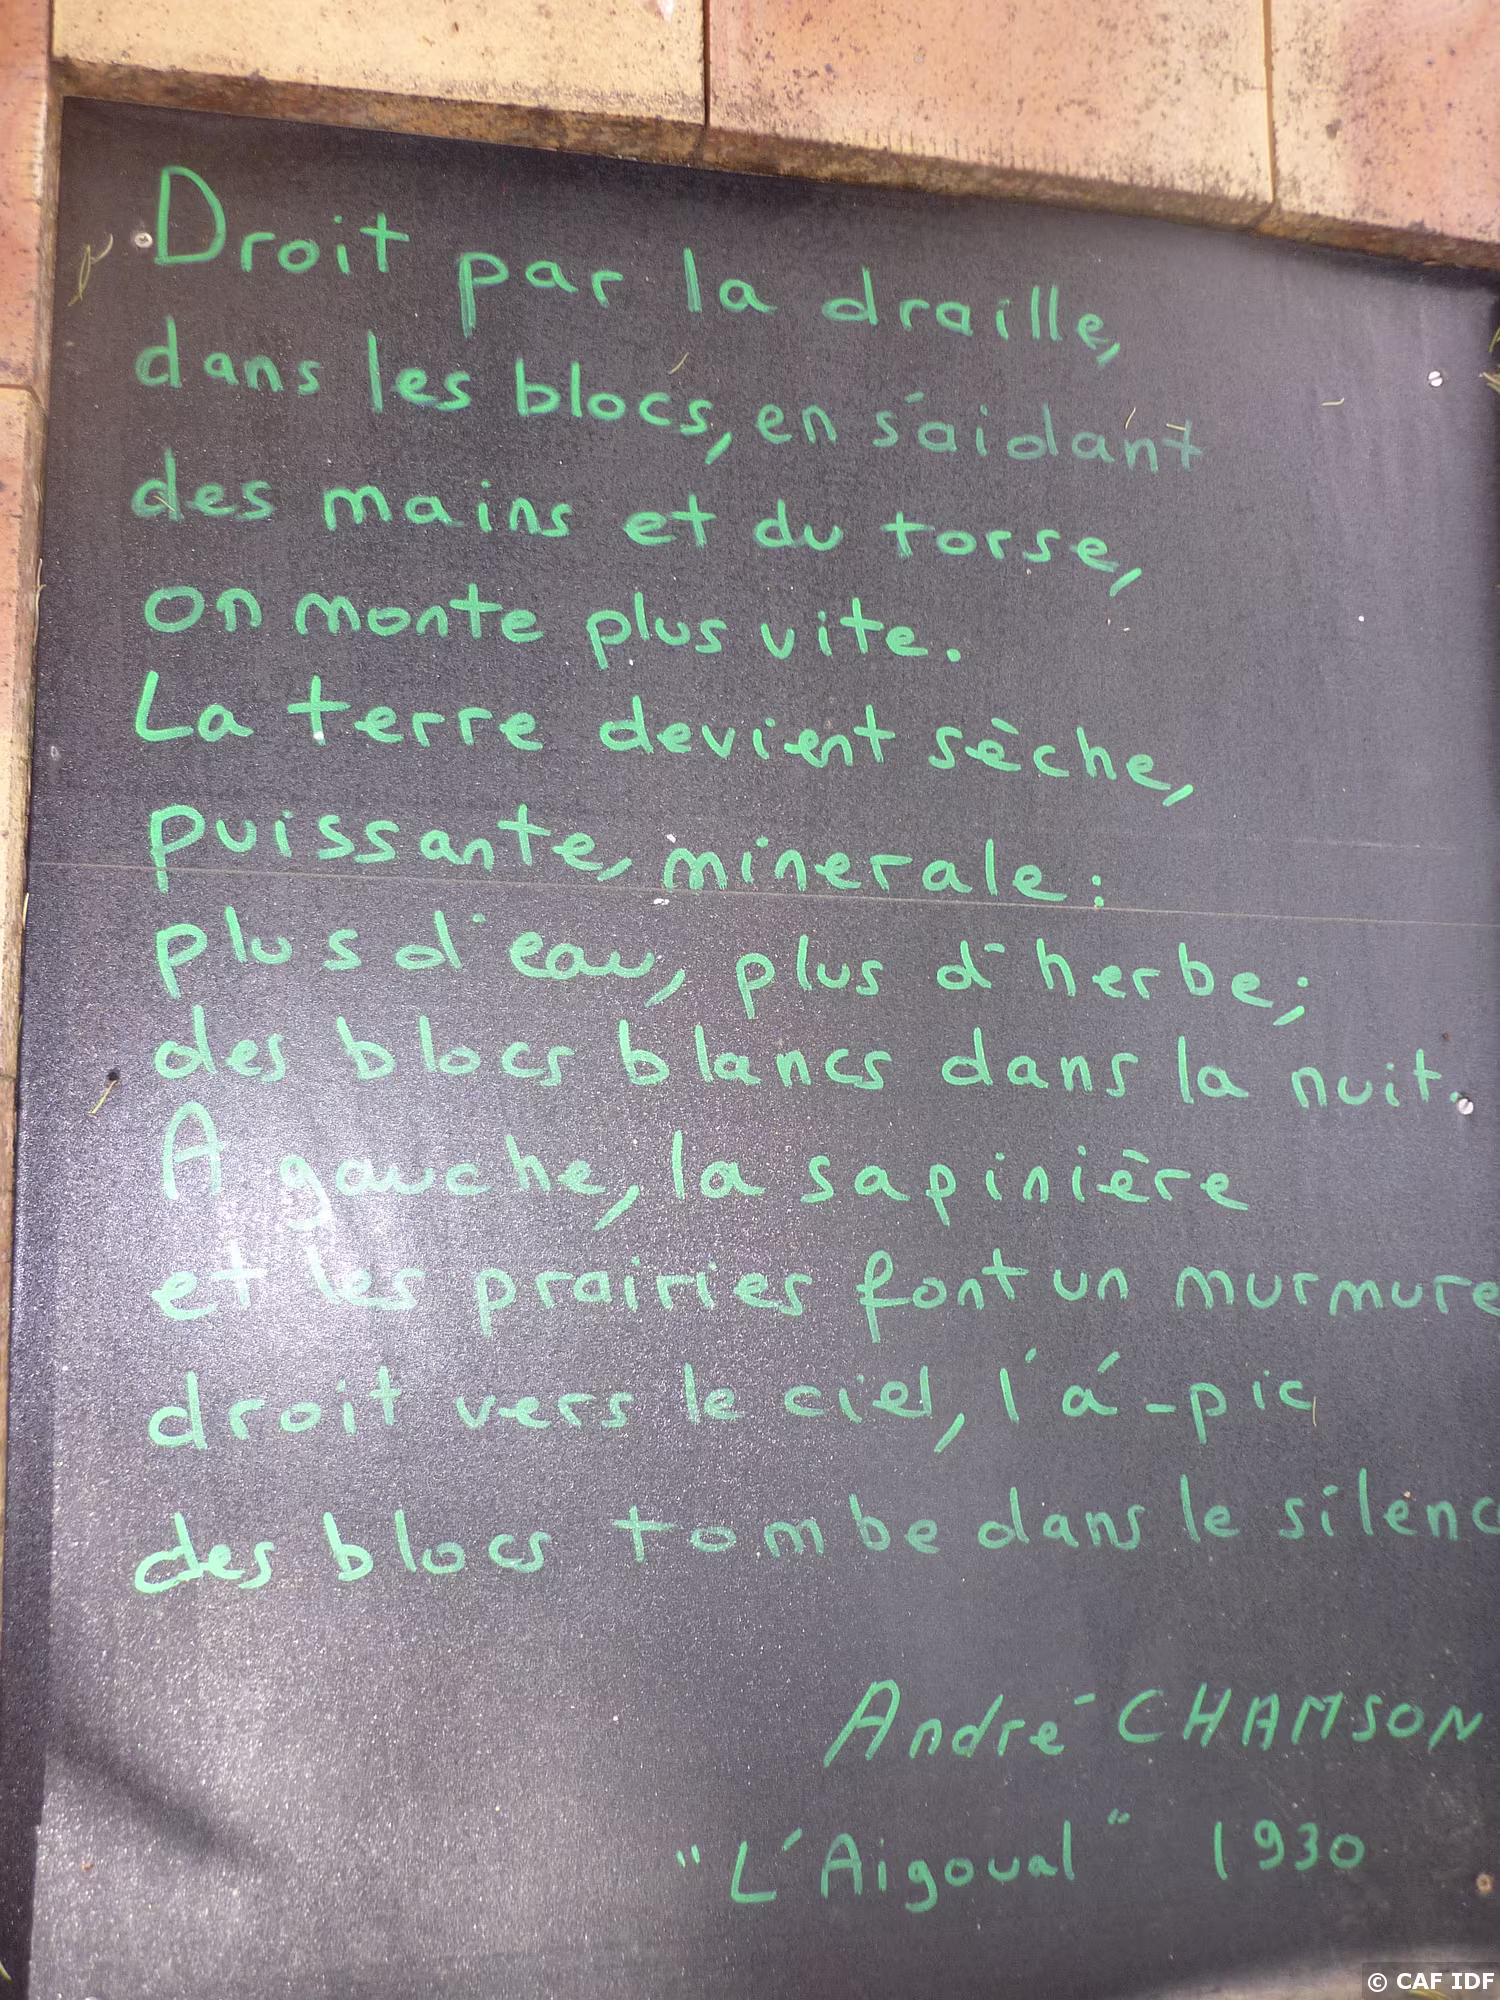 Droit par la draille,
dans les blocs, en s'aidant
des mains et du torse,
on monte plus vite.
La terre devient sèche,
puissante, minerale :
plus d'eau, plus d'herbe ;
des blocs blancs dans la nuit.
A gauche, la sapinière
et les prairies font un murmure
droit vers le ciel, l'á-pic
des blocs tombe dans le silenc
André CHAMSON
"L'Aigoual" 1930
© CAF IDF